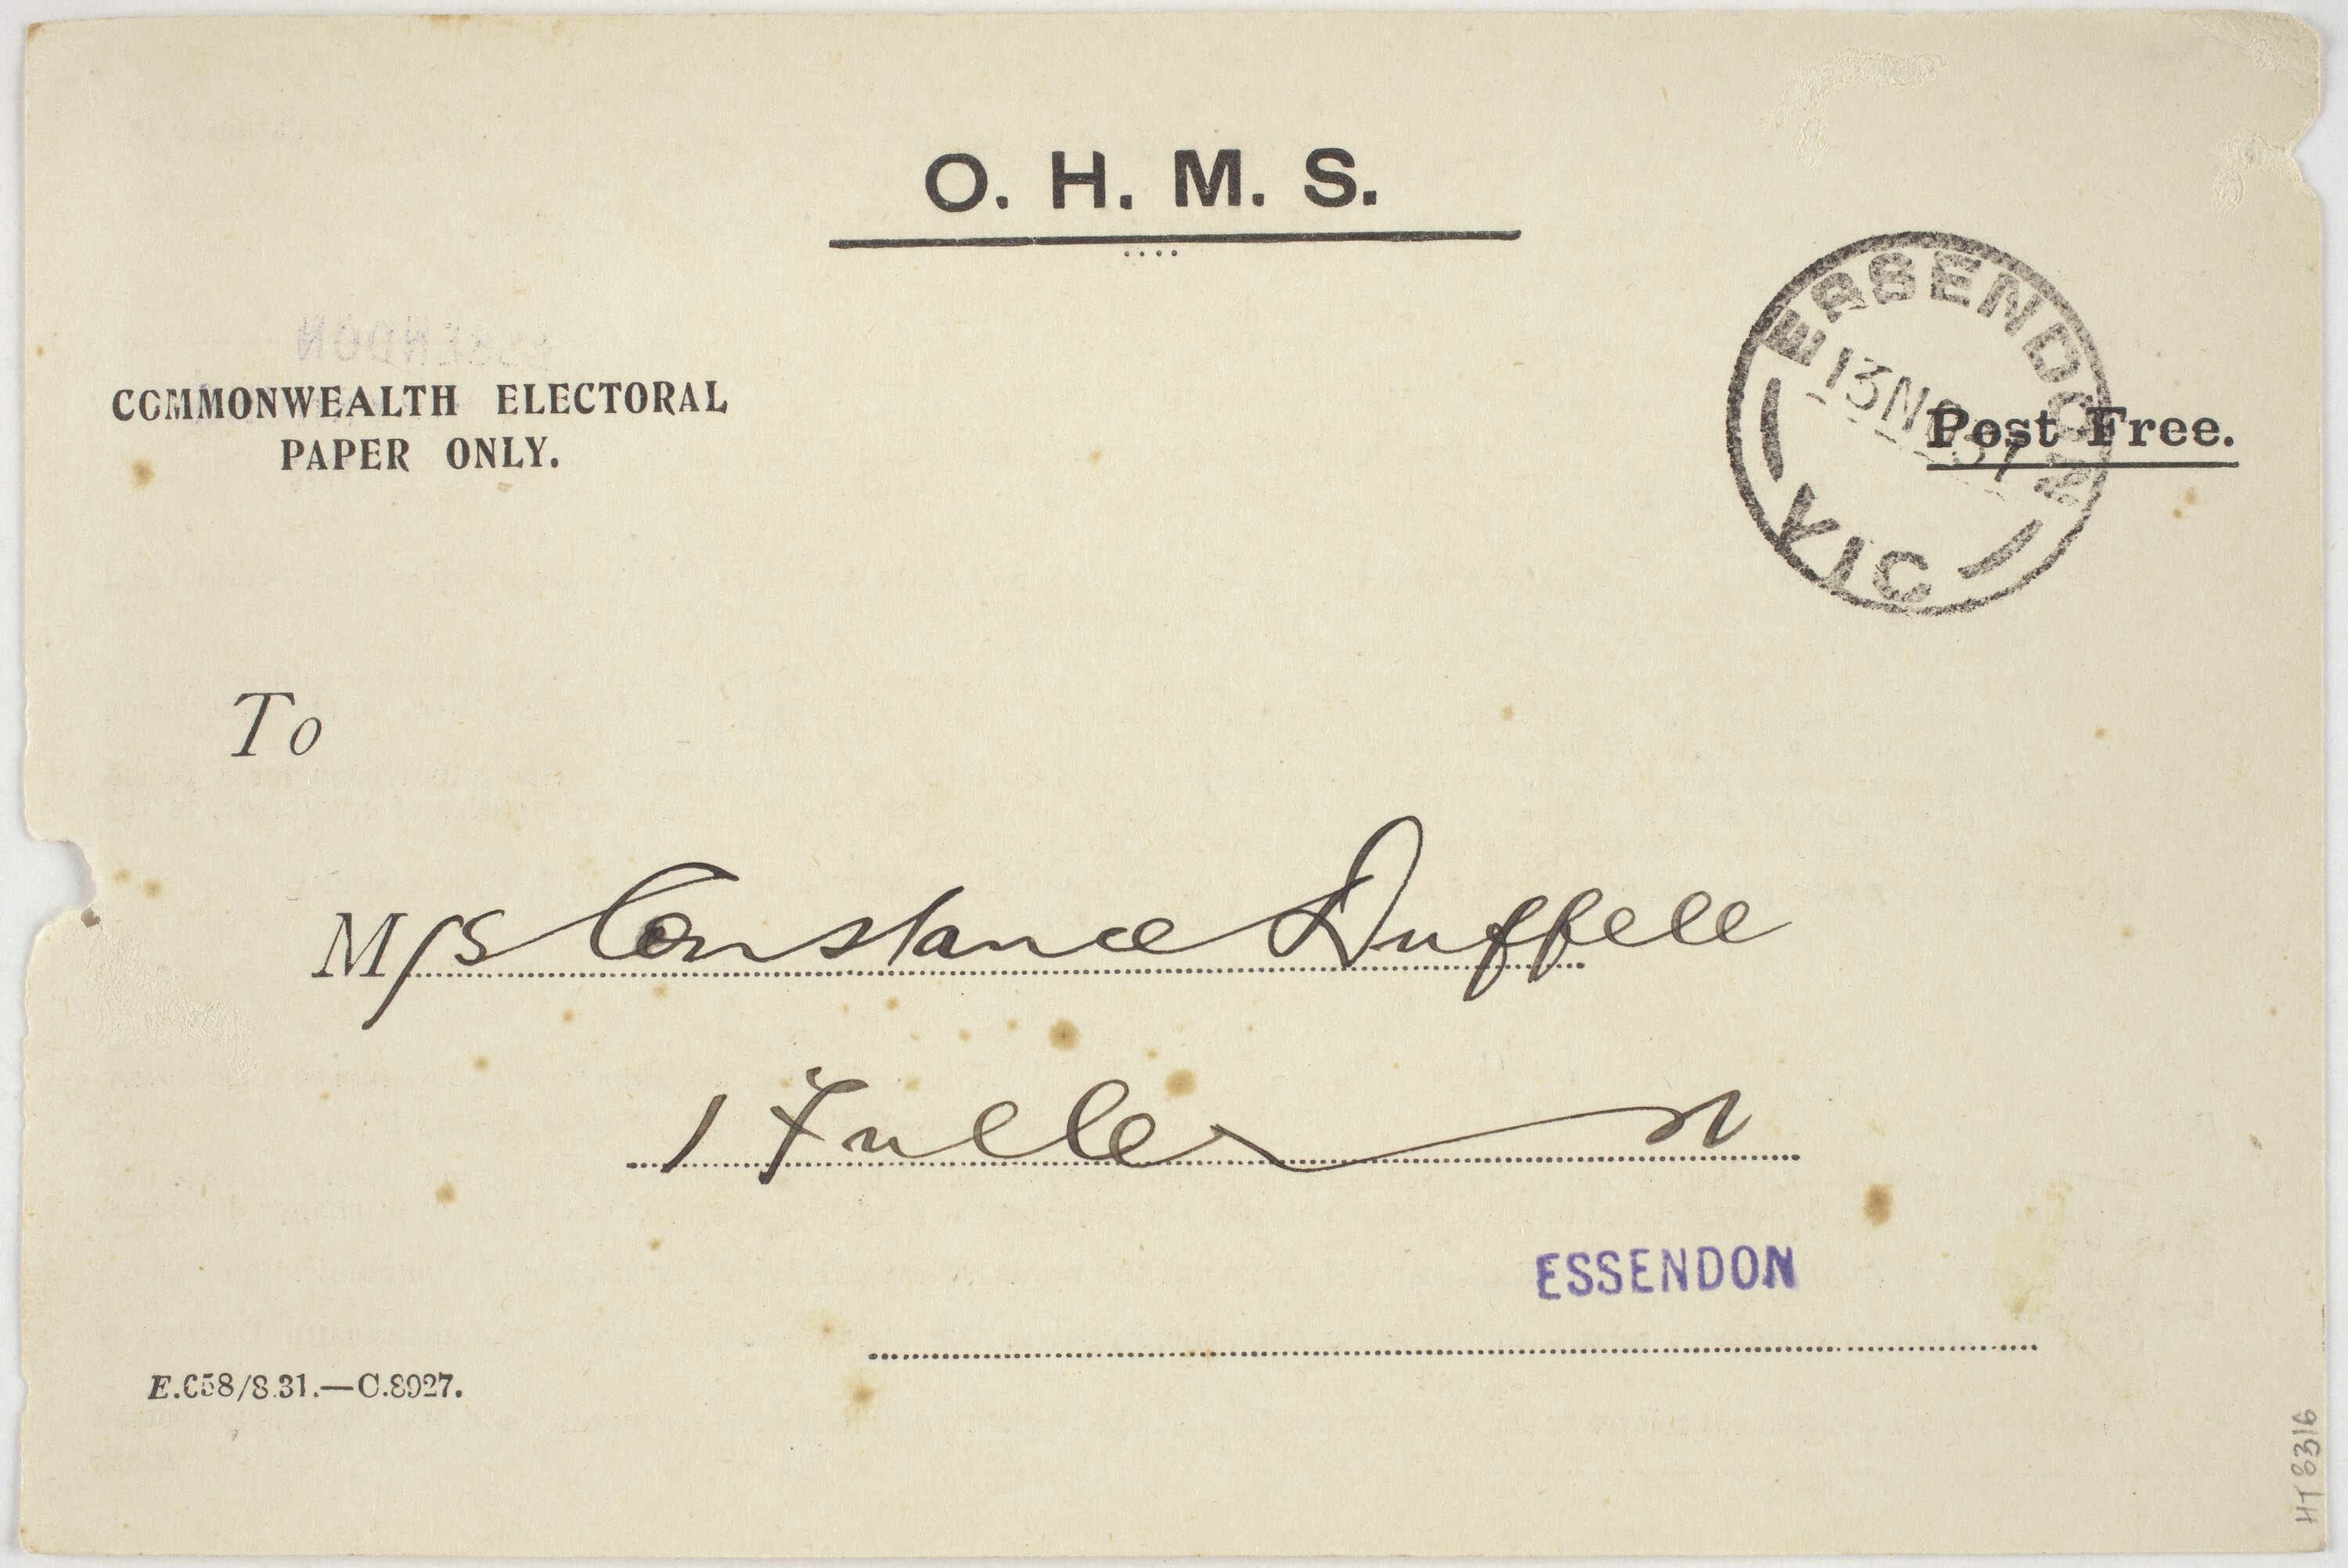 O. H. M. S.
ESSENDON
COMMONWEALTH ELECTORAL
PAPER ONLY.
ESSENDON
13 NO 31
VIC
Post Free.
To
Mrs Constance Duffell
1 Fuller St
ESSENDON
E.C58/8.31.—C.8927.
HT 8316